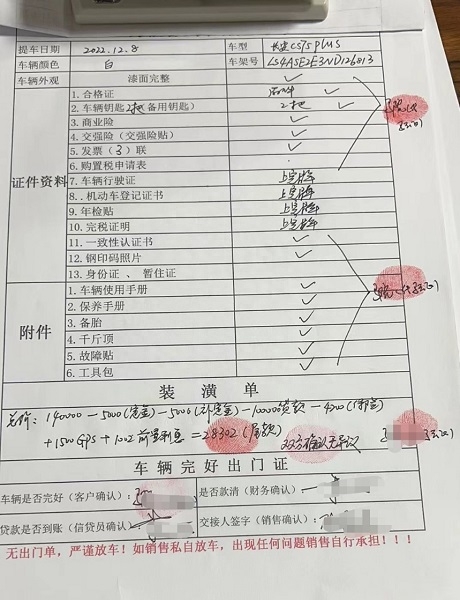 提车日期 2022.12.8 车型 长安CS75PLUS
车辆颜色 白 车架号 LS4ASE2E3ND126813
车辆外观 漆面完整 ✓
证件资料
1. 合格证 ✓
2. 车辆钥匙2把备用钥匙) 2把 ✓
3. 商业险 ✓
4. 交强险（交强险贴） ✓
5. 发票（3）联 ✓
6. 购置税申请表
7. 车辆行驶证 上完牌
8. .机动车登记证书 上完牌
9. 年检贴 上完牌
10. 完税证明 上完牌
11. 一致性认证书 ✓
12. 钢印码照片 ✓
13. 身份证 、 暂住证
附件
1. 车辆使用手册 ✓
2. 保养手册 ✓
3. 备胎 ✓
4. 千斤顶 ✓
5. 故障贴 ✓
6. 工具包 ✓
装 潢 单
总价: 140000 - 5000(定金) - 5000 - 100000贷款
+1500 GPS + 1002 = 28302(尾款) 双方确认无异议
车辆完好出门证
车辆是否完好（客户确认）: 是否款清（财务确认）:
贷款是否到账（信贷员确认）: 交接人签字（销售确认）:
无出门单，严谨放车！如销售私自放车，出现任何问题销售自行承担！！！